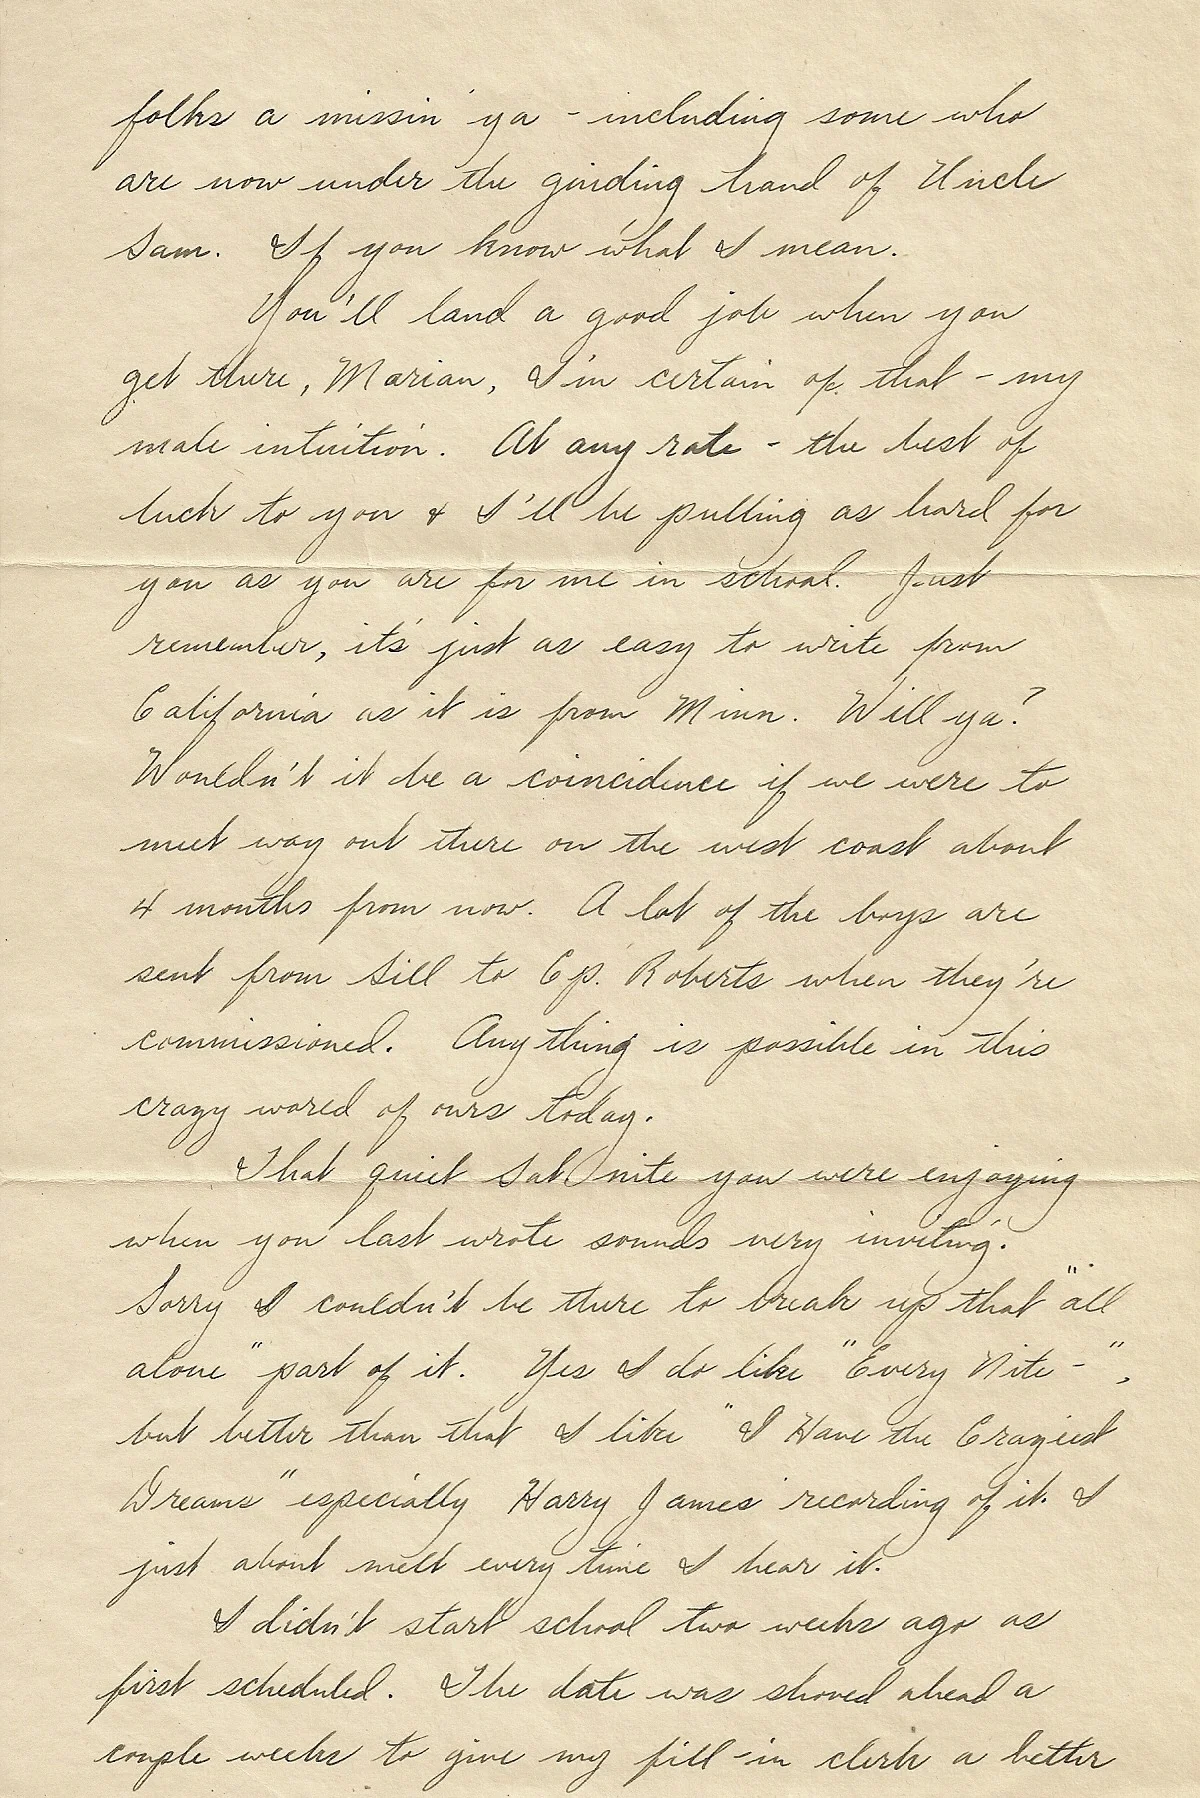 folks a missin' ya - including some who
are now under the guiding hand of Uncle
Sam. If you know what I mean.
You'll land a good job when you
get there, Marian, I'm certain of that - my
male intuition. At any rate - the best of
luck to you & I'll be pulling as hard for
you as you are for me in school. Just
remember, it's just as easy to write from
California as it is from Minn. Will ya?
Wouldn't it be a coincidence if we were to
meet way out there on the west coast about
4 months from now. A lot of the boys are
sent from Sill to Cp. Roberts when they're
commissioned. Anything is possible in this
crazy world of ours today.
That quiet Sat nite you were enjoying
when you last wrote sounds very inviting.
Sorry I couldn't be there to break up that "all
alone" part of it. Yes I do like "Every Nite -",
but better than that I like "I Have the Craziest
Dreams" especially Harry James' recording of it. I
just about melt every time I hear it.
I didn't start school two weeks ago as
first scheduled. The date was shoved ahead a
couple weeks to give my fill-in clerk a better